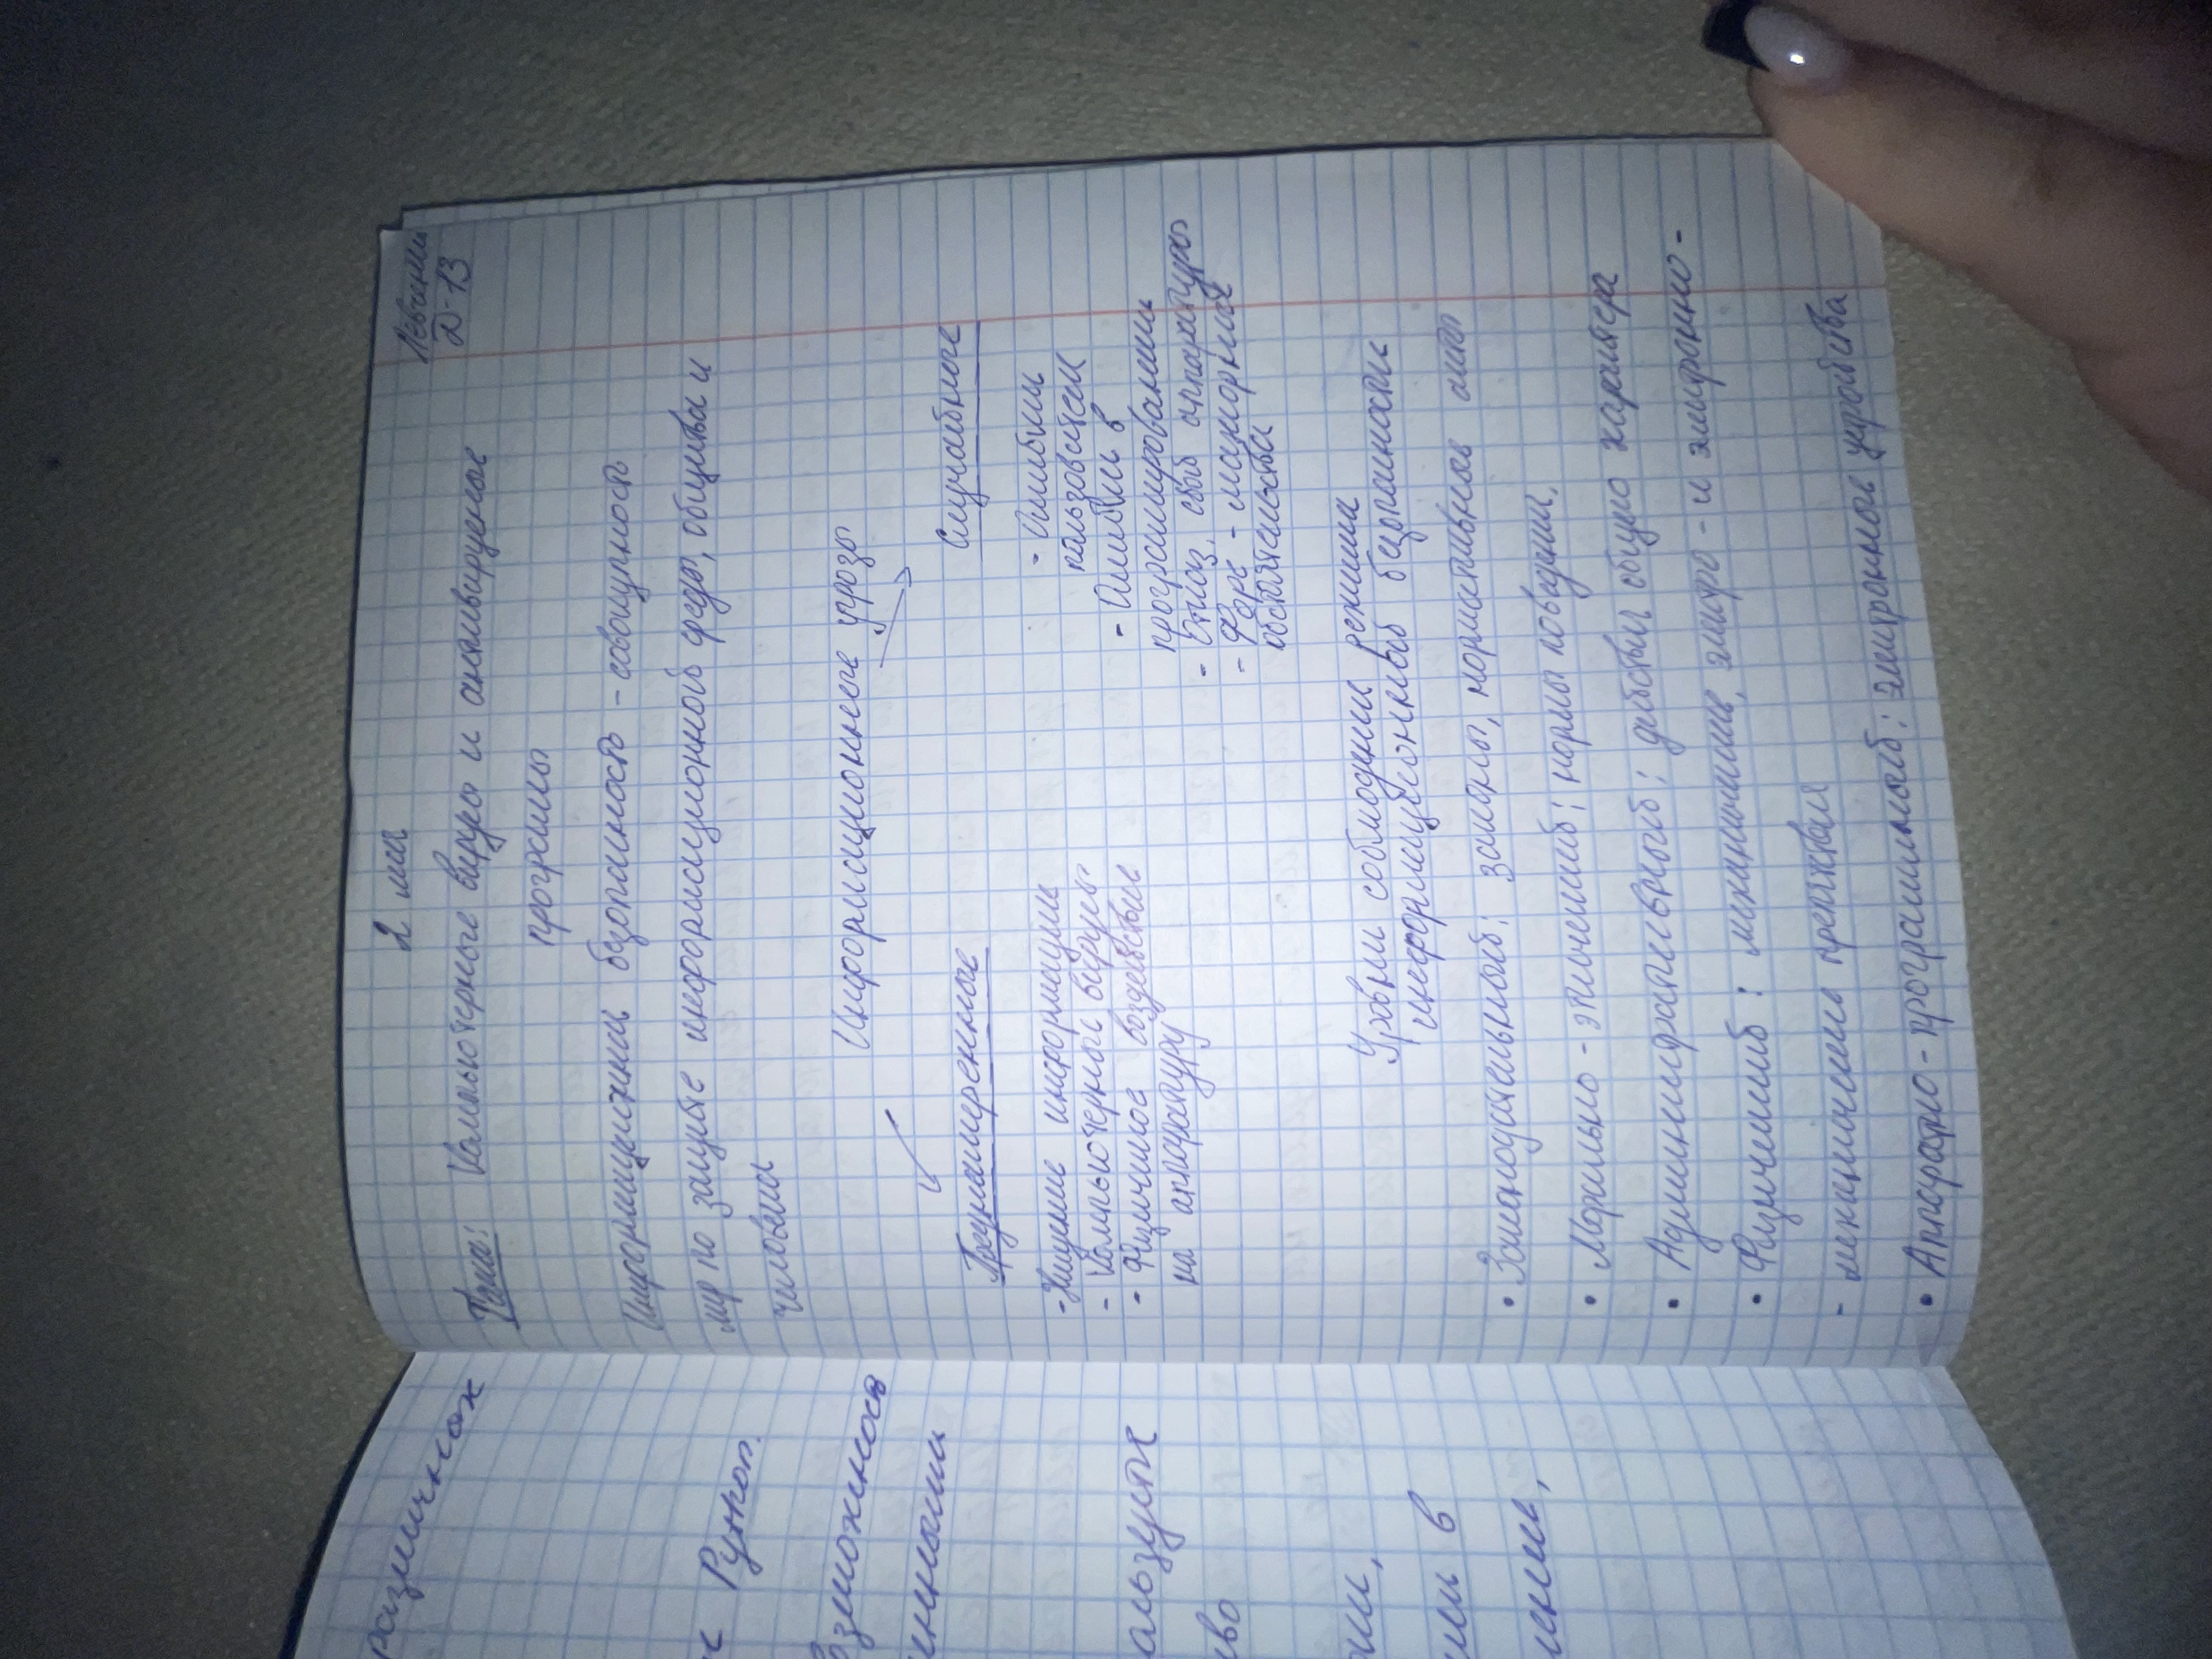 Левченко
D-13
2 мая
Тема: Компьютерные вирусы и антивирусные
программы
Информационная безопасность - совокупность
мер по защите информационной среды, общества и
человека
Информационные угрозы
Преднамеренные
- Хищение информации
- Компьютерные вирусы
- Физическое воздействие
на аппаратуру
Случайные
- Ошибки
пользователя
- Ошибки в
программировании
- Отказ, сбой аппаратуры
- Форс - мажорные
обстоятельства
Уровни соблюдения режима
информационной безопасности
• Законодательный: законы, нормативные акты
• Морально - этический: нормы поведения.
• Административный: действия общего характера
• Физический: механические, электро - и электронно -
- механические препятствия
• Аппаратно - программный: электронные устройства
различных
с Python.
возможность
ользуйте
ово
ии в